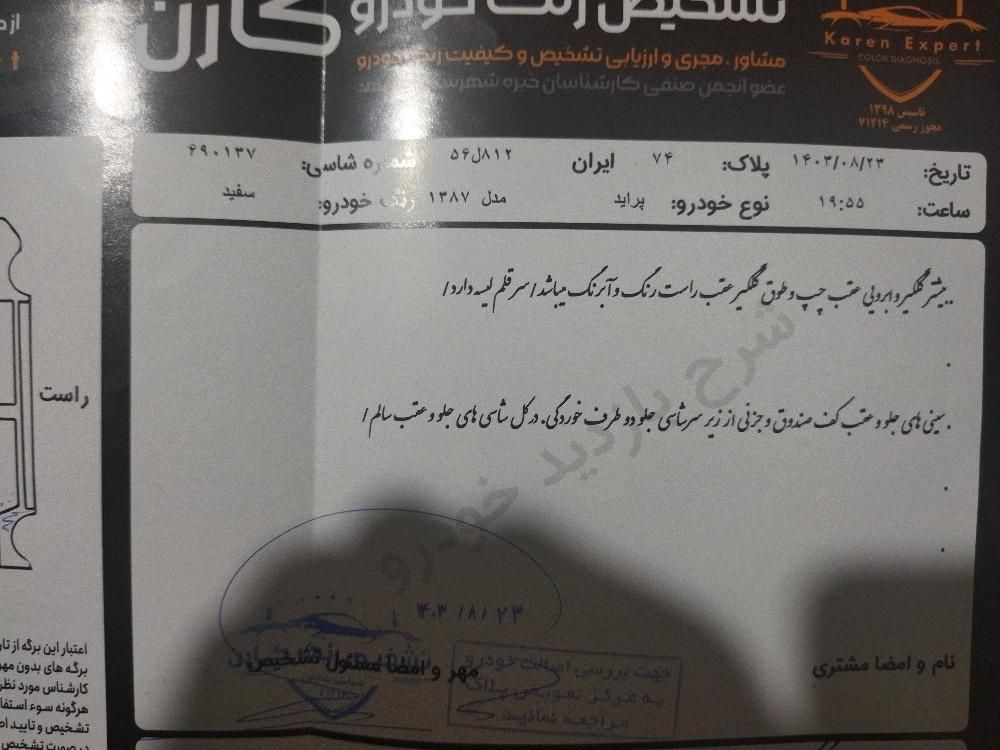 تشخیص رنگ خودرو کارن
مشاور، مجری و ارزیابی تشخیص و کیفیت رنگ خودرو
عضو انجمن صنفی کارشناسان خبره
Karen Expert
COLOR DIAGNOSIS
تاسیس ۱۳۹۸
مجوز رسمی ۷۱۲۱۴
تاریخ: ۱۴۰۳/۰۸/۲۳ پلاک: ۷۴ ایران ۸۱۲ل۵۶ شماره شاسی: ۶۹۰۱۳۷
ساعت: ۱۹:۵۵ نوع خودرو: پراید مدل ۱۳۸۷ رنگ خودرو: سفید
..بیشتر گلگیر و ابرویی عقب چپ و طوق گلگیر عقب راست رنگ و آبرنگ میباشد/سر قلم لیسه دارد/
.
.سینی های جلو و عقب کف صندوق و جزئی از زیر سرشاسی جلو دو طرف خوردگی. در کل شاسی های جلو و عقب سالم/
.
.
شرح بازدید خودرو
راست
۱۴۰۳/۸/۲۳
نام و امضا مشتری
مهر و امضا مسئول تشخیص
تشخیص رنگ کارن
جهت بررسی اصالت خودرو
به مرکز تعویض پلاک
مراجعه نمائید
اعتبار این برگه از
برگه های بدون مهر
کارشناس مورد نظر
هرگونه سوء
تشخیص و تایید
در صورت تشخیص